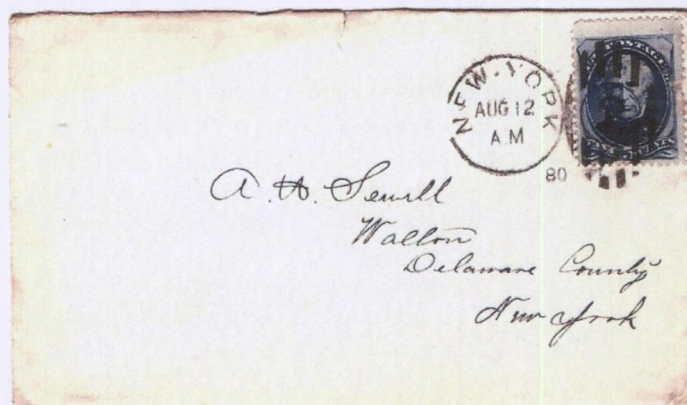 NEW-YORK
AUG 12
A.M
80
A. H. Sewell
Walton
Delaware County
New York